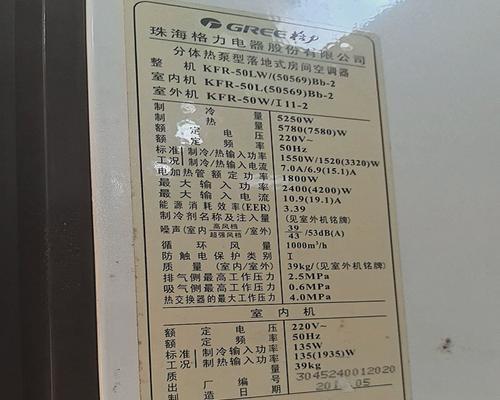 GREE 格力
珠海格力电器股份有限公司
分体热泵型落地式房间空调器
整机 KFR-50LW/(50569)Bb-2
室内机 KFR-50L(50569)Bb-2
室外机 KFR-50W/I11-2
制冷量 5250W
制热量 5780(7580)W
额定电压 220V~
额定频率 50Hz
标准工况 制冷/热输入功率 1550W/1520(3320)W
制冷/热输入电流 7.0A/6.9(15.1)A
电加热管额定功率 1800W
最大输入功率 2400(4200)W
最大输入电流 10.9(19.1)A
能源消耗效率(EER) 3.39
制冷剂名称及注入量 (见室外机铭牌)
噪声(室内 高风档/超强风档 /室外) 39/43 /53dB(A)
循环风量 1000m³/h
防触电保护类别 I
质量(室内/室外) 39kg/(见室外机铭牌)
排气侧最高工作压力 2.5MPa
吸气侧最高工作压力 0.6MPa
热交换器的最大工作压力 4.0MPa
室内机
额定电压 220V~
额定频率 50Hz
标准工况 制冷输入功率 135W
制热输入功率 135(1935)W
质量 39kg
出厂编号 3045240012020
制造日期